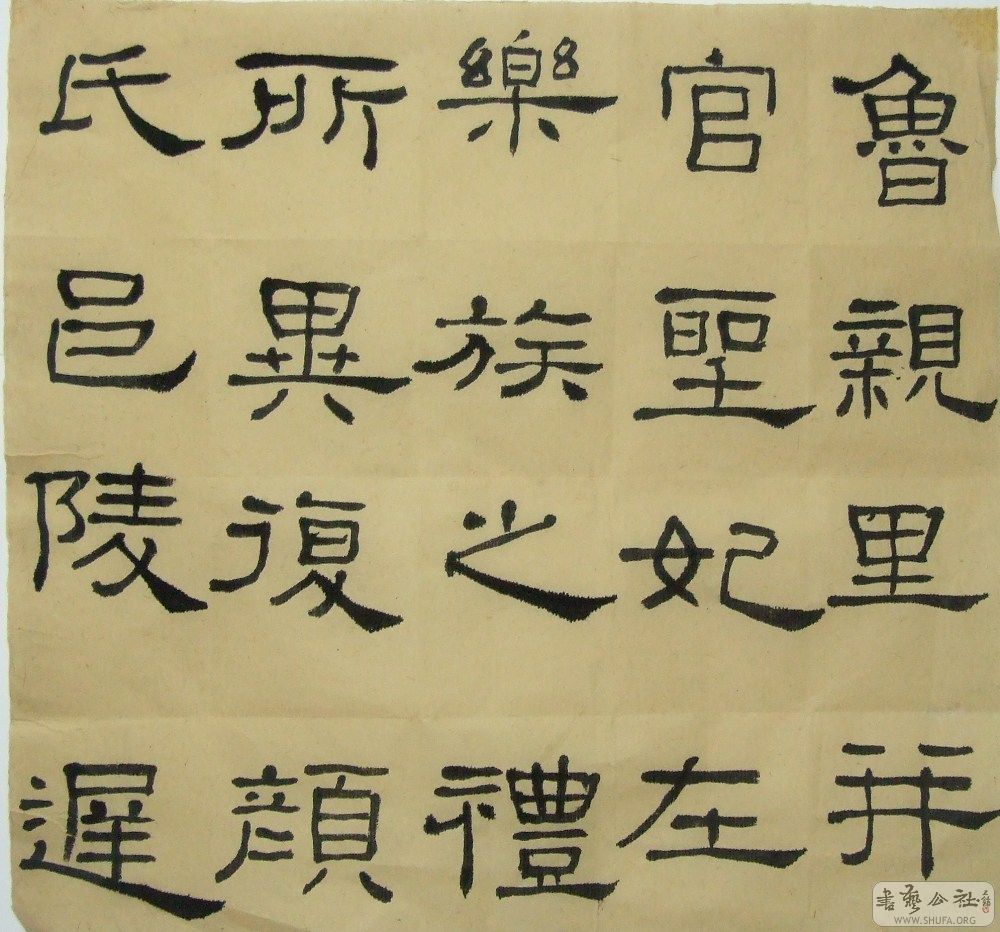 魯親里并
官聖妃在
樂族之禮
所異復顏
氏邑陵遲
書藝公社
WWW.SHUFA.ORG